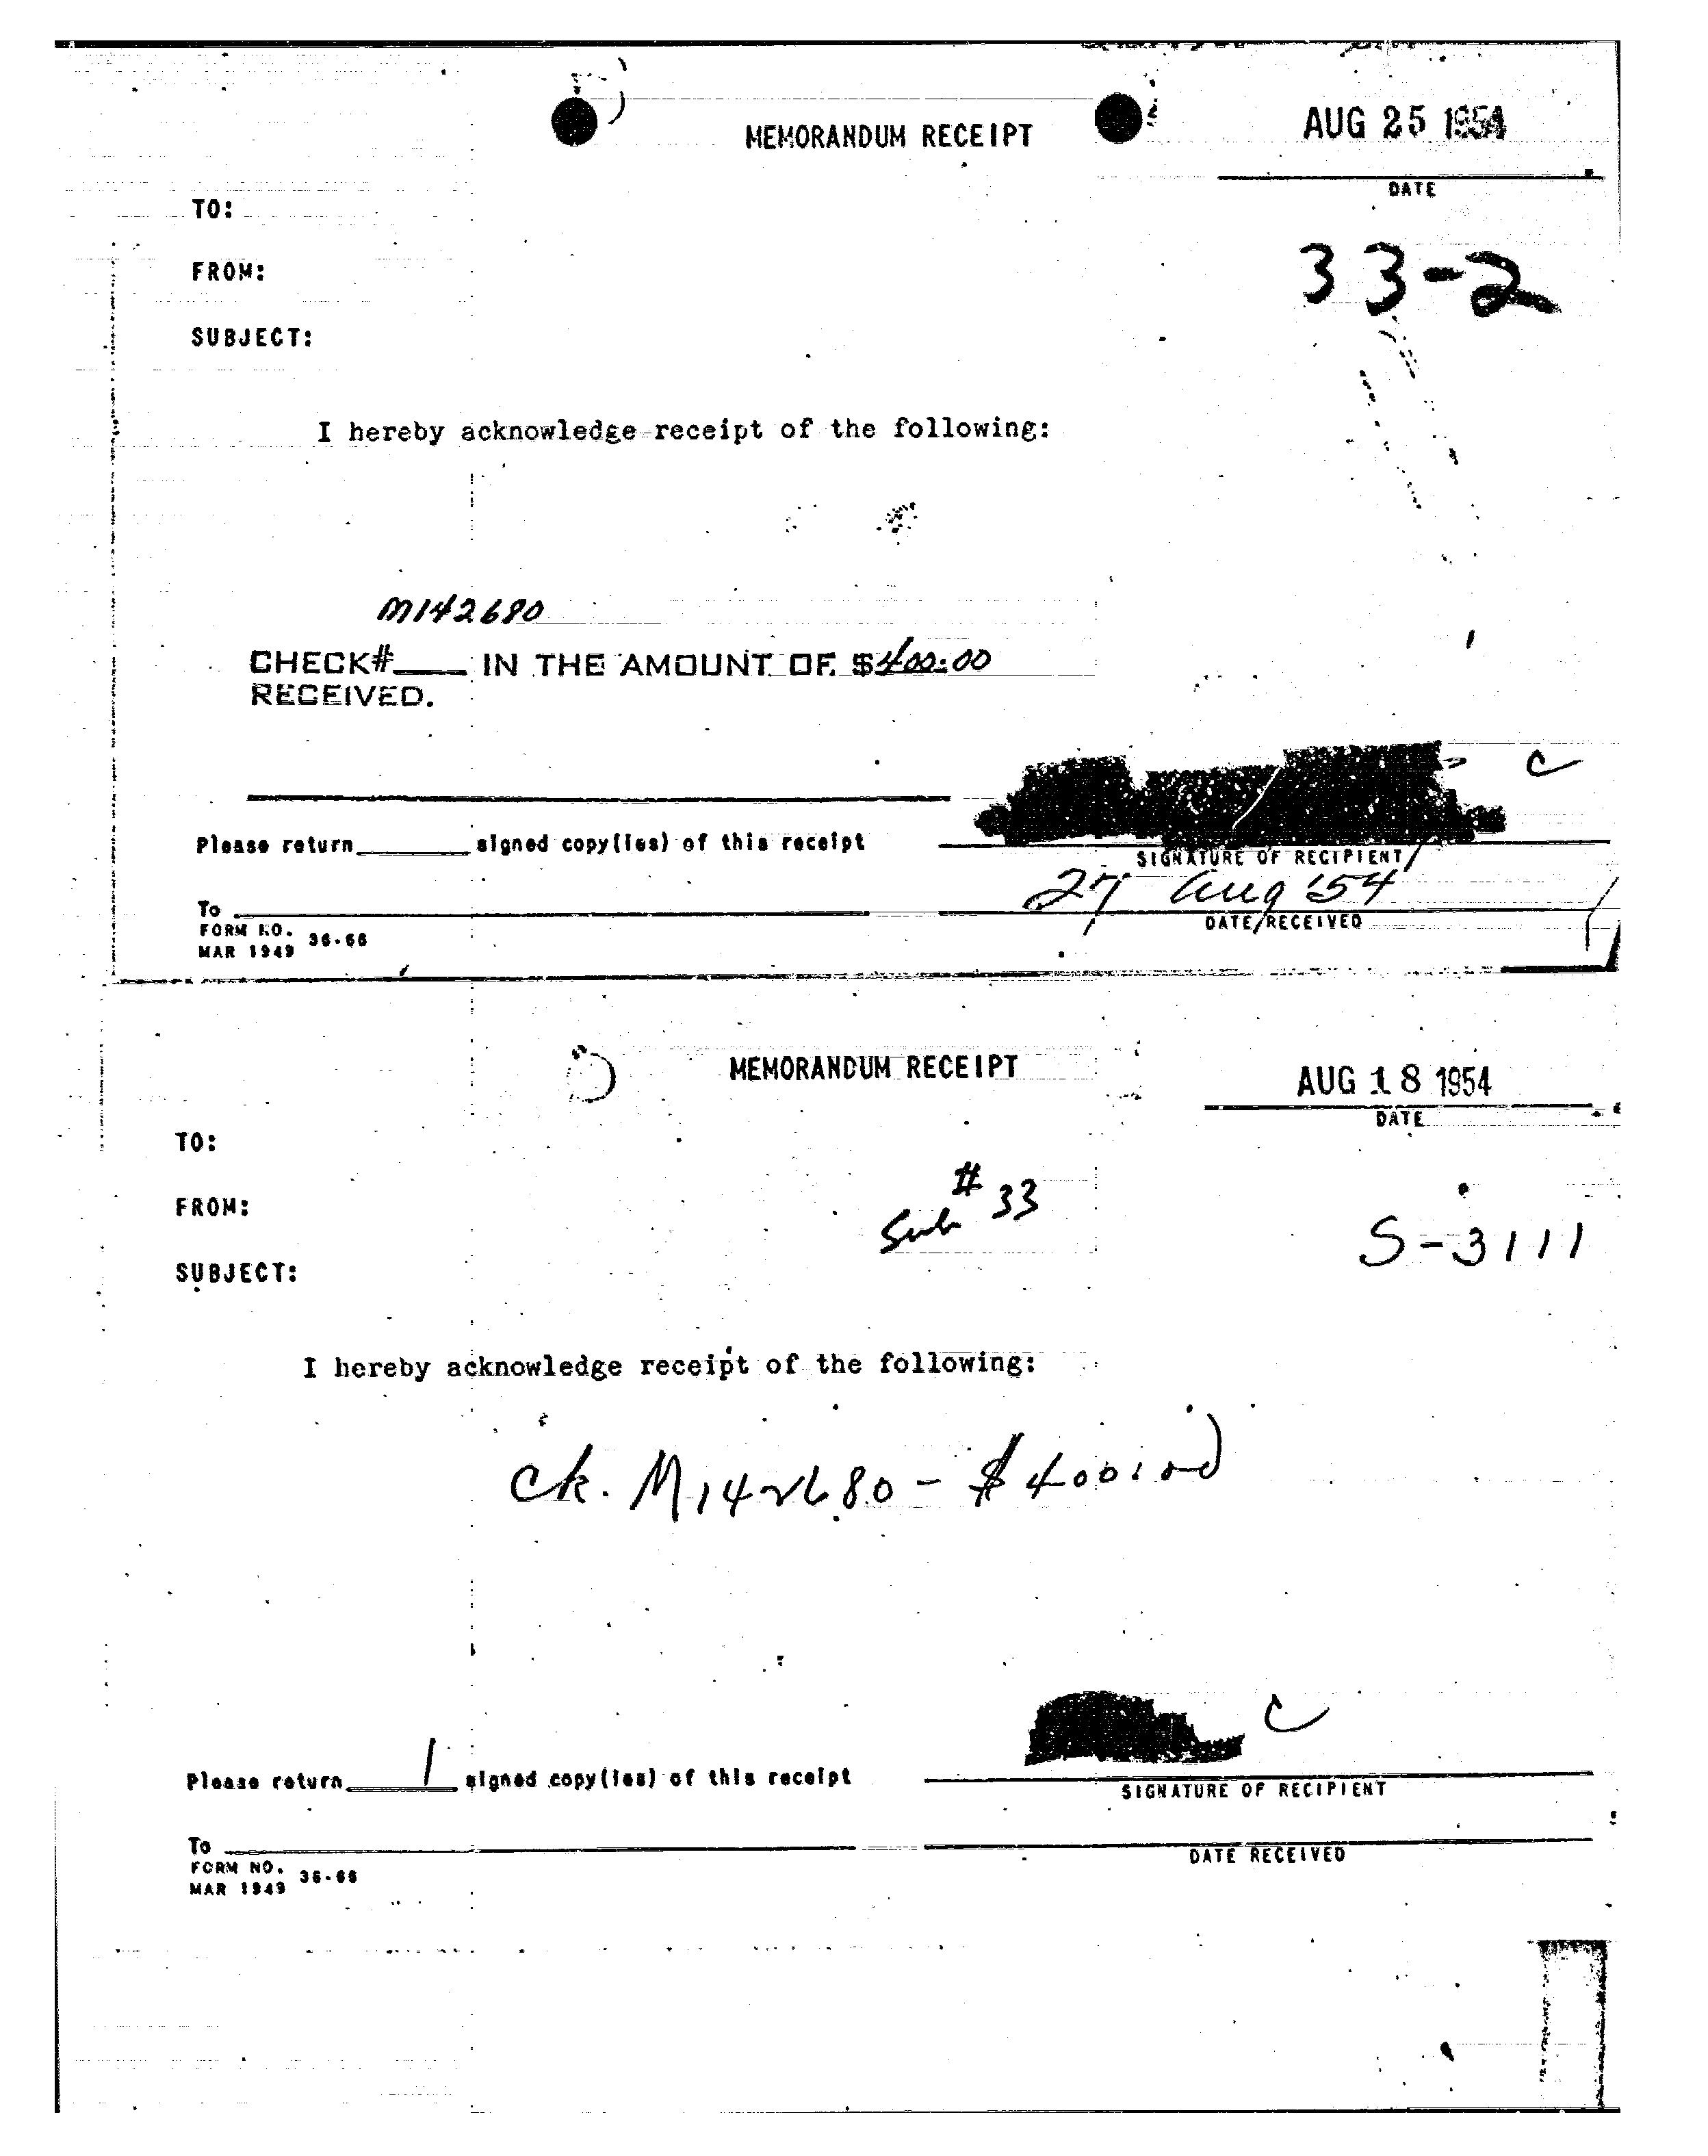 MEMORANDUM RECEIPT
AUG 25 1954
DATE
TO:
FROM:
33-2
SUBJECT:
I hereby acknowledge receipt of the following:
M142680
CHECK#____ IN THE AMOUNT OF $400.00
RECEIVED.
C
Please return_______signed copy(ies) of this receipt
SIGNATURE OF RECIPIENT
27 Aug '54
To
DATE RECEIVED
FORM NO. 36-66
MAR 1949
MEMORANDUM RECEIPT
AUG 18 1954
DATE
TO:
FROM:
Sub #33
S-3111
SUBJECT:
I hereby acknowledge receipt of the following:
Ck. M142680 - $400.00)
C
Please return 1 signed copy(ies) of this receipt
SIGNATURE OF RECIPIENT
To
DATE RECEIVED
FORM NO. 36-66
MAR 1949